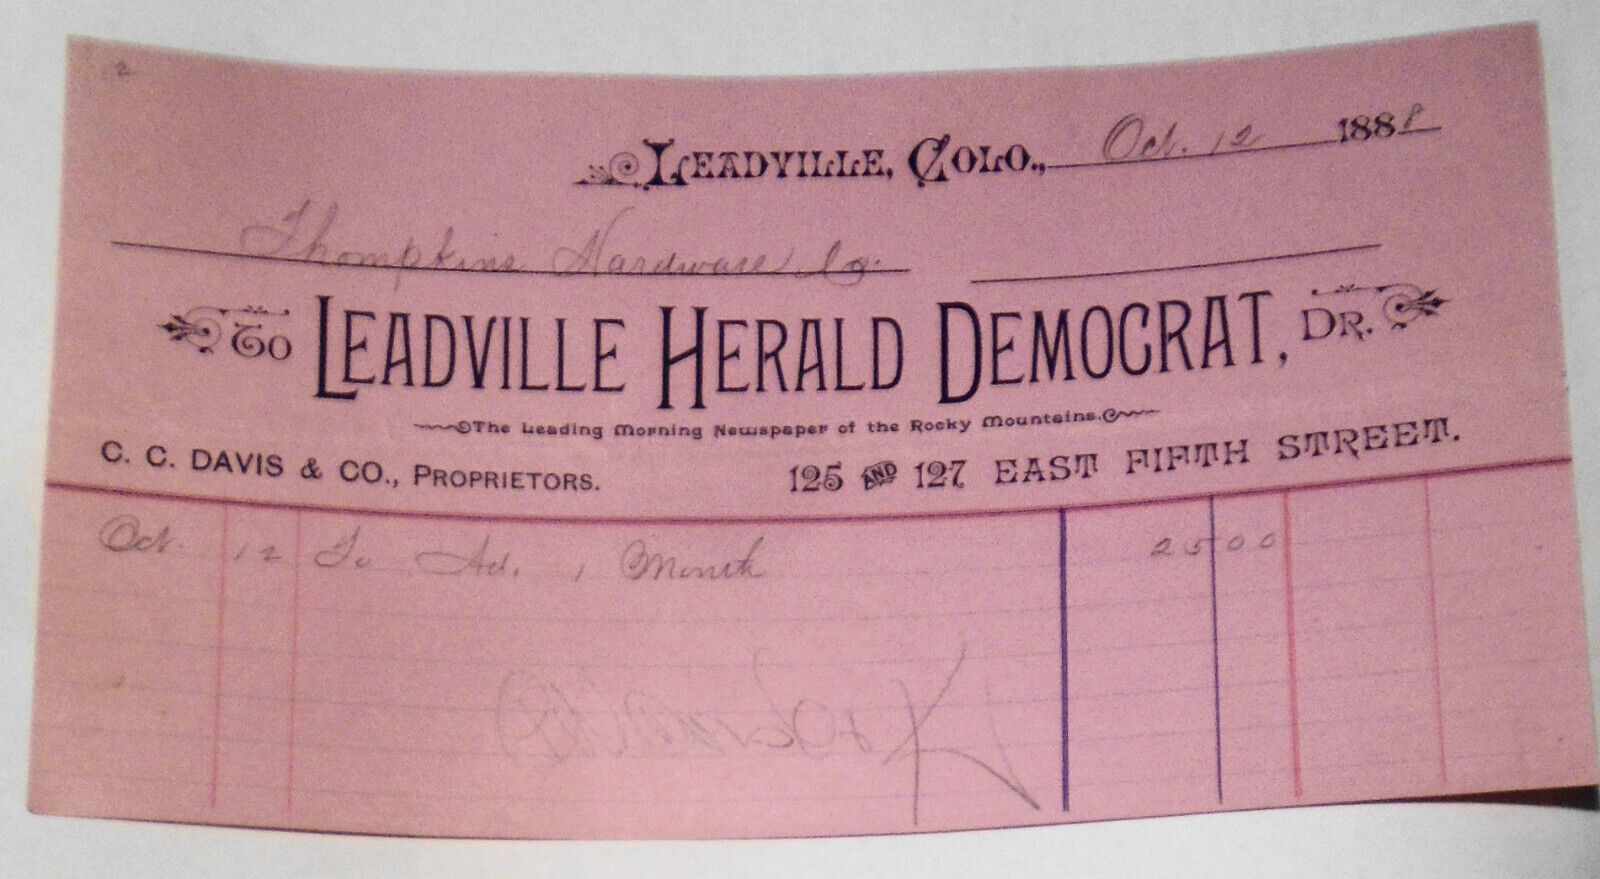 12
LEADVILLE, COLO., Oct. 12 1888
Thompkins Hardware Co.
TO LEADVILLE HERALD DEMOCRAT, DR.
The Leading Morning Newspaper of the Rocky Mountains.
C. C. DAVIS & CO., PROPRIETORS. 125 AND 127 EAST FIFTH STREET.
Oct. 12 To Ad. 1 Month 25 00